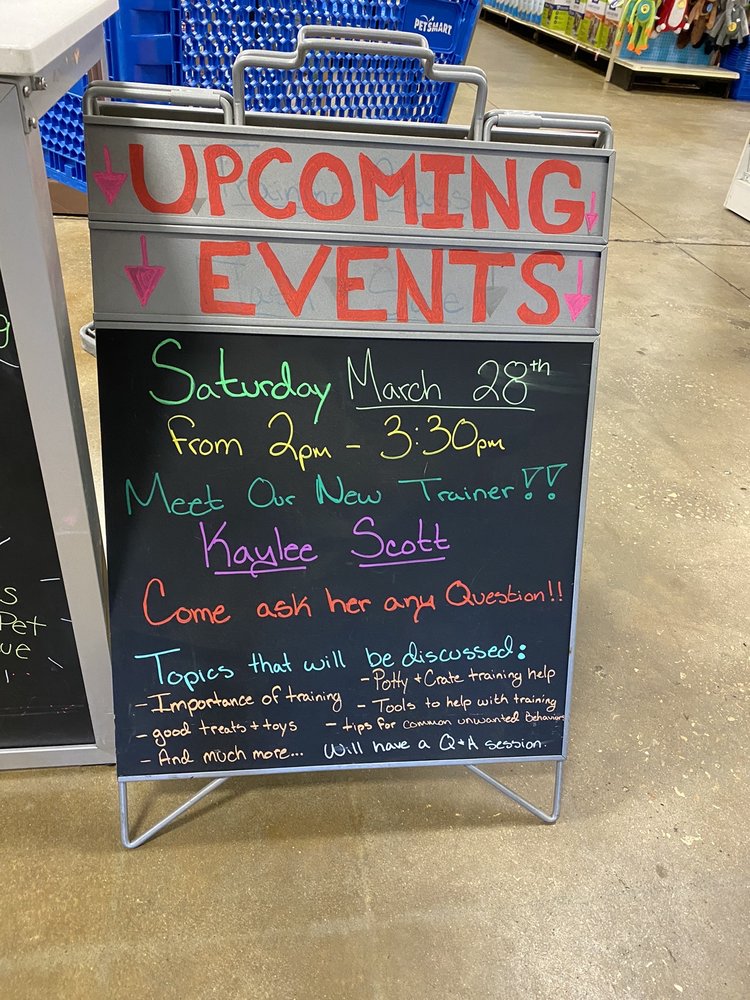 PETSMART
UPCOMING
EVENTS
Saturday March 28th
From 2pm - 3:30pm
Meet Our New Trainer!!
Kaylee Scott
Come ask her any Question!!
Topics that will be discussed:
- Importance of training
- Potty + Crate training help
- good treats + toys
- Tools to help with training
- tips for common unwanted Behaviors
- And much more... Will have a Q+A session.
s
Pet
ue